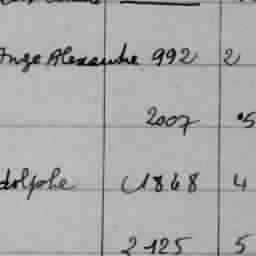 Ange Alexandre 992 2
2007 5
dolphe 1848 4
2125 5